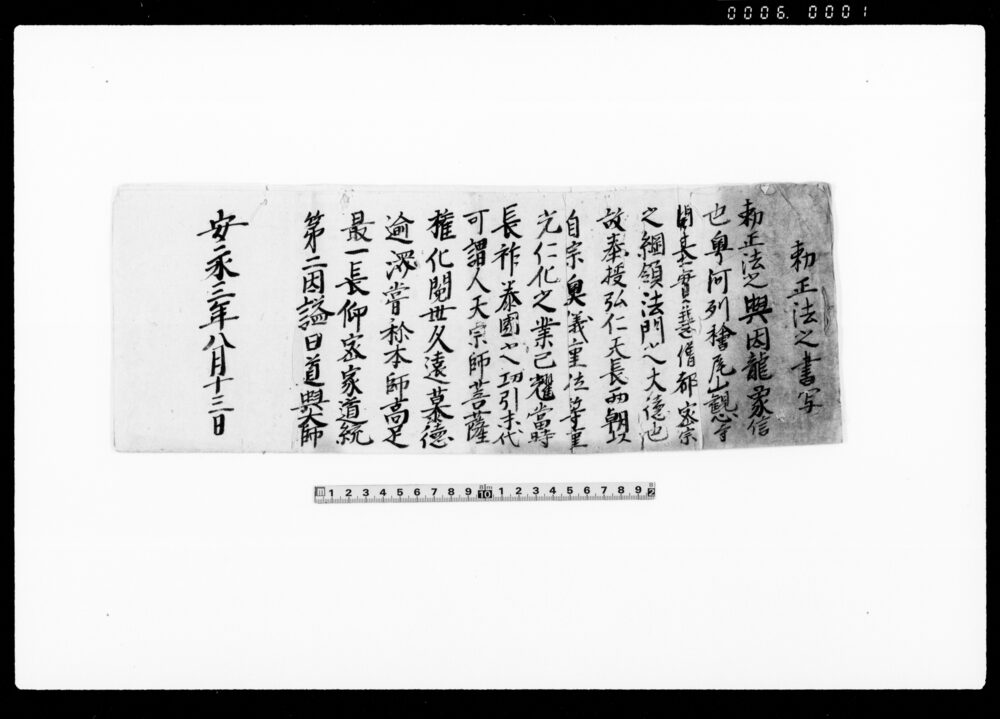 0006. 0001
勅正法之書写
勅正法之興因龍象信
也粤阿列檜尾山觀心寺
開基實惠僧都密宗
之綱領法門之大徳也
故奉授弘仁天長両朝以
自宗奥義重位等重
光仁化之業已耀當時
長祚泰國之功引末代
可謂人天宗師菩薩
權化閲世久遠慕德
逾深嘗称本師高足
最一長仰密家道統
第二因謚曰道興大師
安永三年八月十三日
1 2 3 4 5 6 7 8 9 10 1 2 3 4 5 6 7 8 9 2